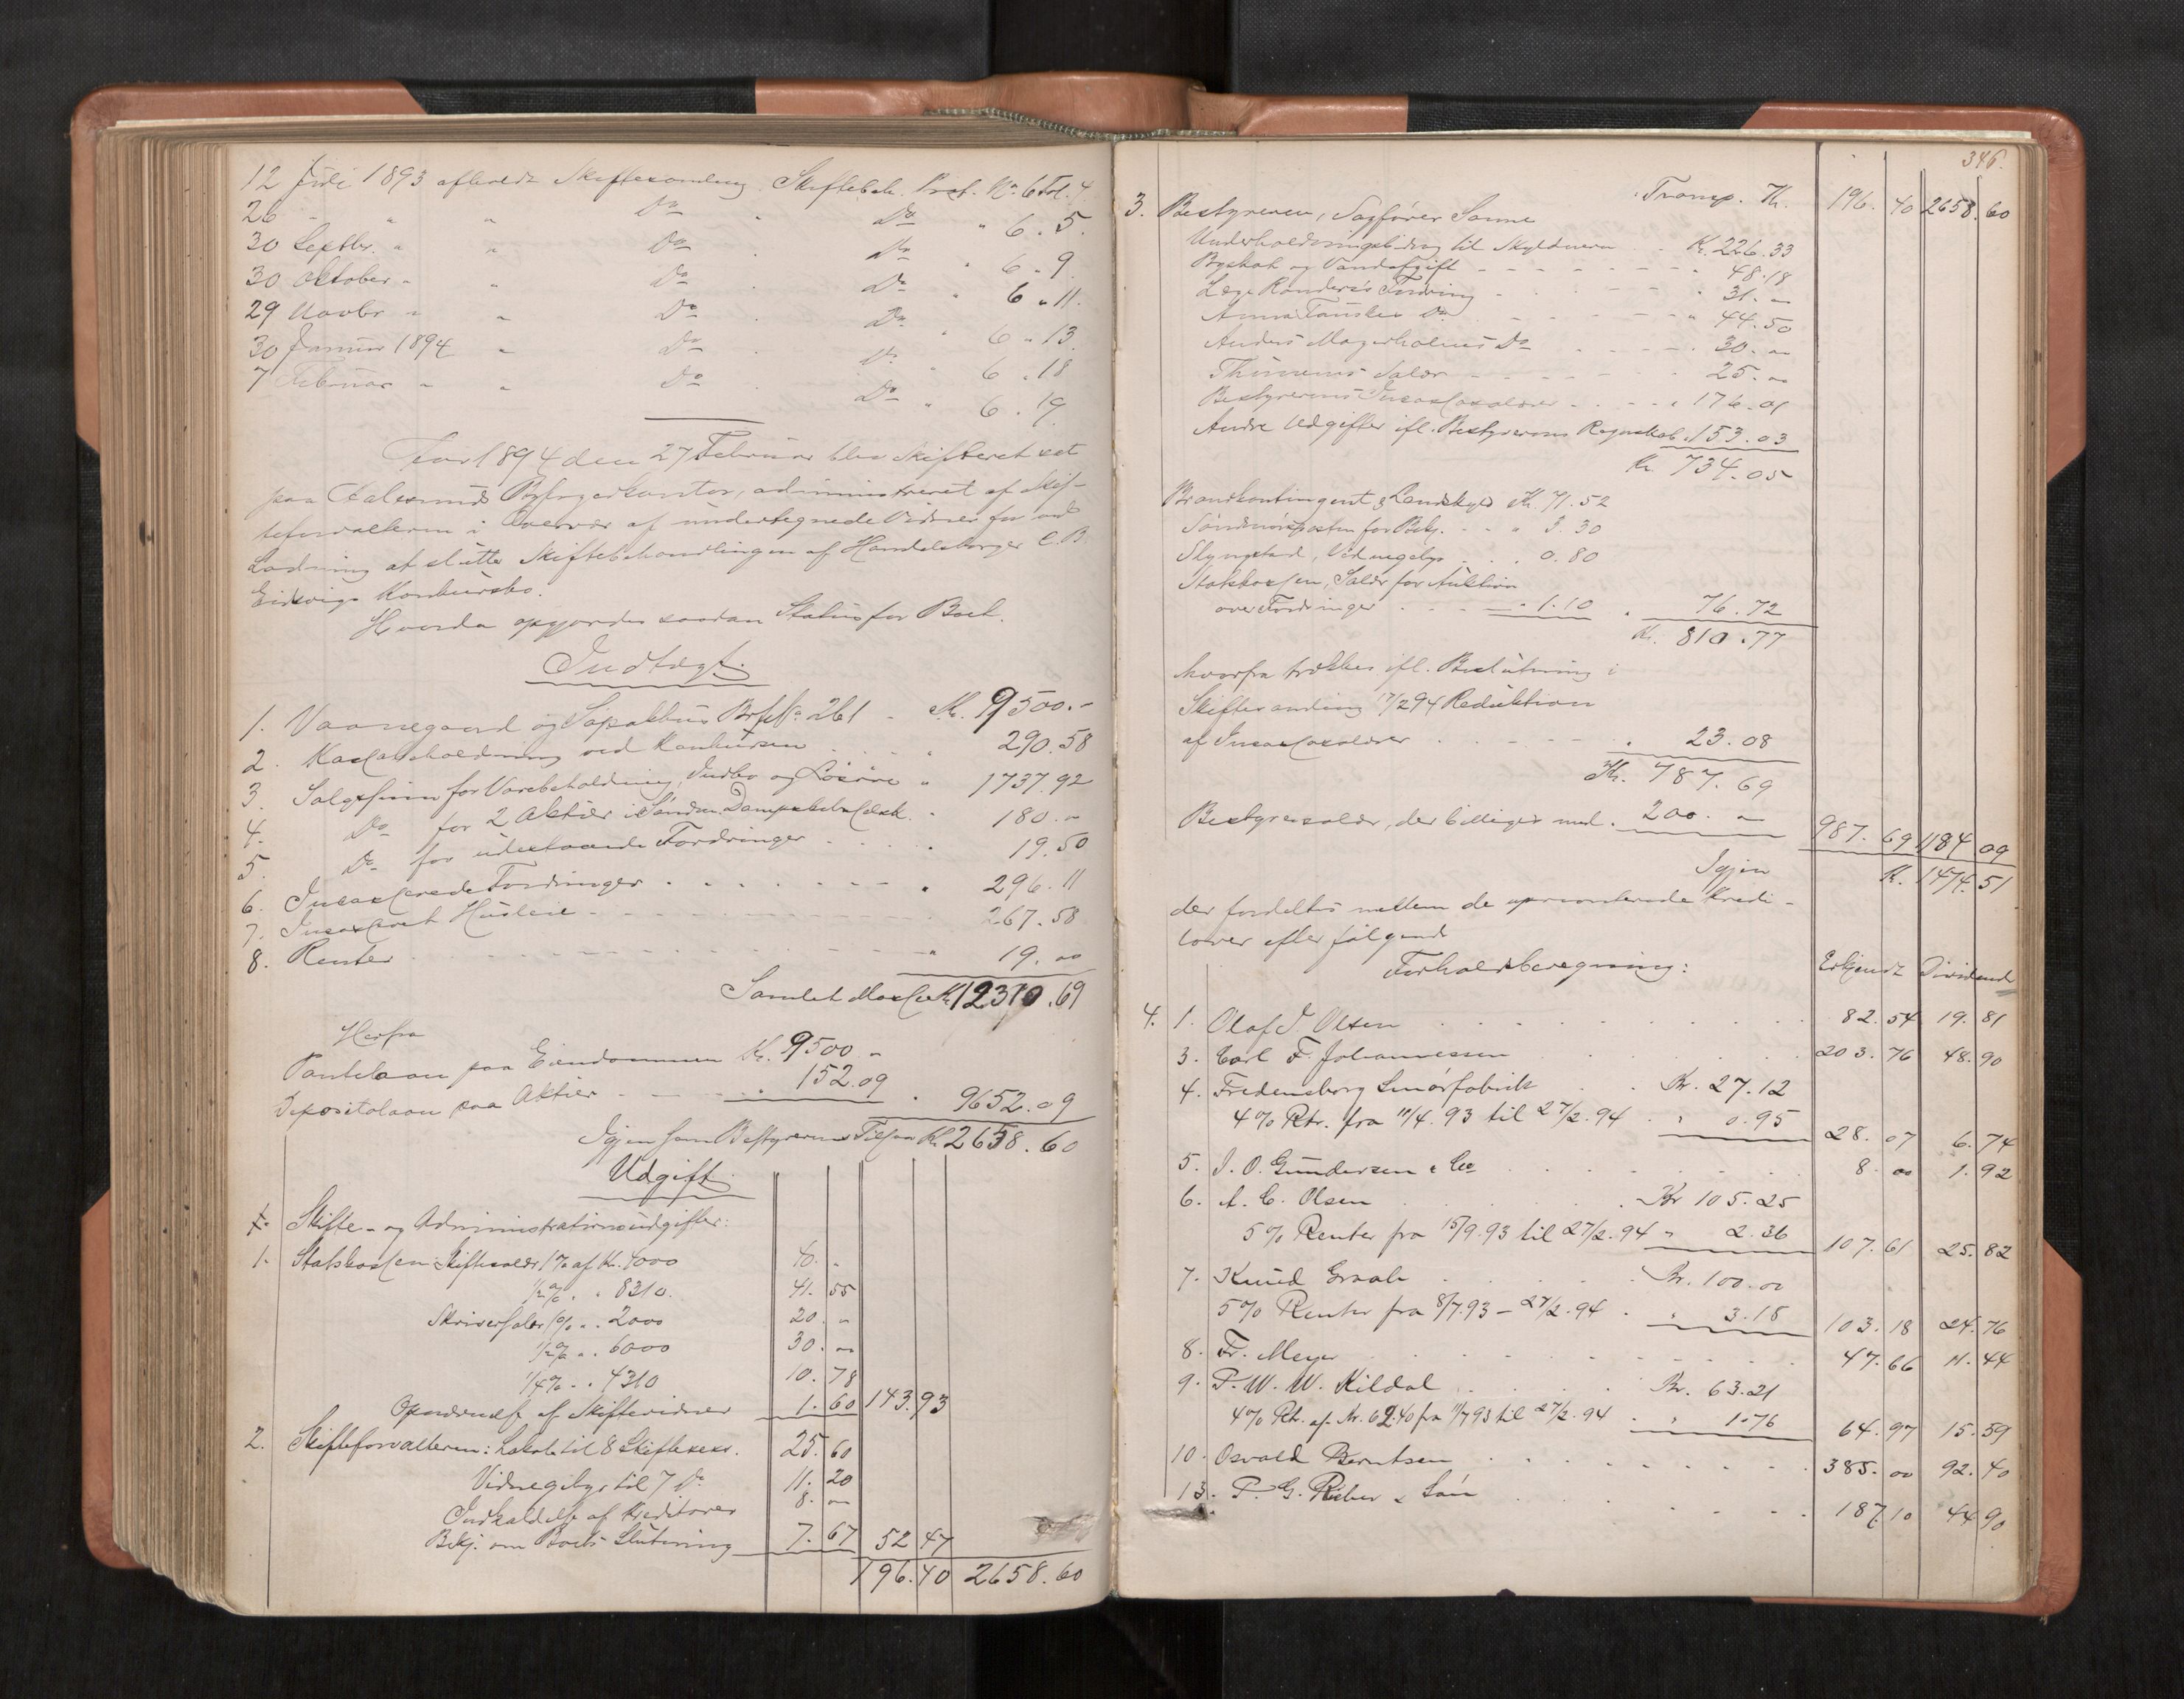 12 Juli 1893 afholdt Skiftesamling Skiftebeh. Prot. No. 6 Fol. 4
26 " " " Do " Do " 6 . 5.
30 Septbr. " " Do " Do " 6 . 9
30 Oktober " " Do " Do " 6 . 11.
29 Novbr " " Do " Do " 6 . 13.
30 Januar 1894 " Do " Do " 6 . 18
7 Februar " " Do " Do " 6 . 19
Aar 1894 den 27 Februar blev Skifteret sat
paa Aalesunds Byfogedkontor, administreret af Skif-
teforvalteren i Overvær af undertegnede Vidner for ved
Ladning at slutte Skiftebehandlingen af Handelsborger C. B.
Eidsvigs Konkursbo.
Hvorda opgjordes saadan Status for Boet.
Indtægt.
1. Vaanegaard og Søpakhus Brf. No. 261 - Kr. 9500.-
2. Kassabeholdning ved Konkursen . . . 290.58
3. Salgssum for Varebeholdning, Indbo og Løsøre " 1737.92
4. Do for 2 Aktier i Søndm. Dampskibsselsk. " 180.-
5. Do for udestaaende Fordringer . . . . 19.50
6. Incasserede Fordringer . . . . . " 296.11
7. Incasseret Husleie - - - - - 267.58
8. Renter - - - - - " 19.00
Samlet Masse Kr. 12310.69
Herfra
Pantelaan paa Eiendommen Kr. 9500 -
Depositolaan paa Aktier - - - " 152.09 . 9652.09
Igjen som Bestyrerens Tilsvar Kr. 2658.60
Udgift.
Skifte- og Administrationsudgifter:
1. Statskassen: Skiftesalær 1% af Kr. 4000 40. -
1/2% " " 8310. 41. 55
Skriversalær 1% " " 2000 20. -
1/2% " " 6000 30. 00
1/4% " " 4310 10. 78
Opnævnelse af Skiftevidner 1. 60 143. 93
2. Skifteforvalteren: Lokale til 8 Skiftesess. 25. 60
Vidnegebyr til 7 Do 11. 20
Indkaldelse af Kreditorer 8. 00
Bekj. om Boets Slutning 7. 67 52 47
196.40 2658.60
346.
Transp. Kr. 196. 40 2658. 60
3. Bestyreren, Sagfører Sanne
Underholdningsbidrag til Skyldneren . Kr. 226.33
Byskat og Vandafgift - - - - - 48.18
Læge Randers's Fordring - - - " 31. -
Anna Do - - - " 44.50
Anders Magerholms Do . . . . 30. -
Salær - - - - 25. 00
Bestyrerens Incassosalær . . . " 176.01
Andre Udgifter ifl. Bestyrerens Regnskab " 153.03
Kr. 734.05
Brandkontingent & Landskyld Kr. 71.52
Søndmørsposten for Bekj. - - " 3.30
Slyngstad, Vidnegebyr . . . 0.80
Statskassen, Salær for Auktion
over Fordringer . . . 1.10 . 76.72
Kr. 810.77
hvorfra trækkes ifl. Beslutning i
Skiftesamling 17/2 94 Reduktion
af Incassosalærer . . . . . 23.08
Kr. 787.69
Bestyrersalær, der billiges med . 200. - 987. 69 1184 09
Igjen K. 1474. 51
der fordeltes mellem de uprioriterede Kredi-
torer efter følgende
Forholdsberegning: Erkjendt Dividend
4. 1. Olaf J. Olsen . . . . . 82. 54 19. 81
3. Carl F. Johannessen . . . 203. 76 48. 90
4. Fredensborg Smørfabrik . . Kr. 27.12
4% Rtr. fra 11/4. 93 til 27/2. 94 . " 0.95 28. 07 6. 74
5. J. O. Gundersen & Co . . . . 8. 00 1. 92
6. A. C. Olsen . . . . Kr 105.25
5% Renter fra 15/9.93 til 27/2.94 " 2.36 107. 61 25. 82
7. Knud Graah . . . . Kr. 100.00
5% Renter fra 8/7.93 - 27/2.94 . " 3.18 103. 18 24. 76
8. Fr. Meyer . . . . . 47. 66 11. 44
9. P. W. W. Kildal . . . . Kr. 63.21
4% Rt. af Kr. 62.40 fra 11/7 93 til 27/2.94 . " 1.76 64. 97 15. 59
10. Osvald Berntsen . . . . 385. 00 92. 40
13. P. G. Rieber & Søn . . . . 187. 10 44 90